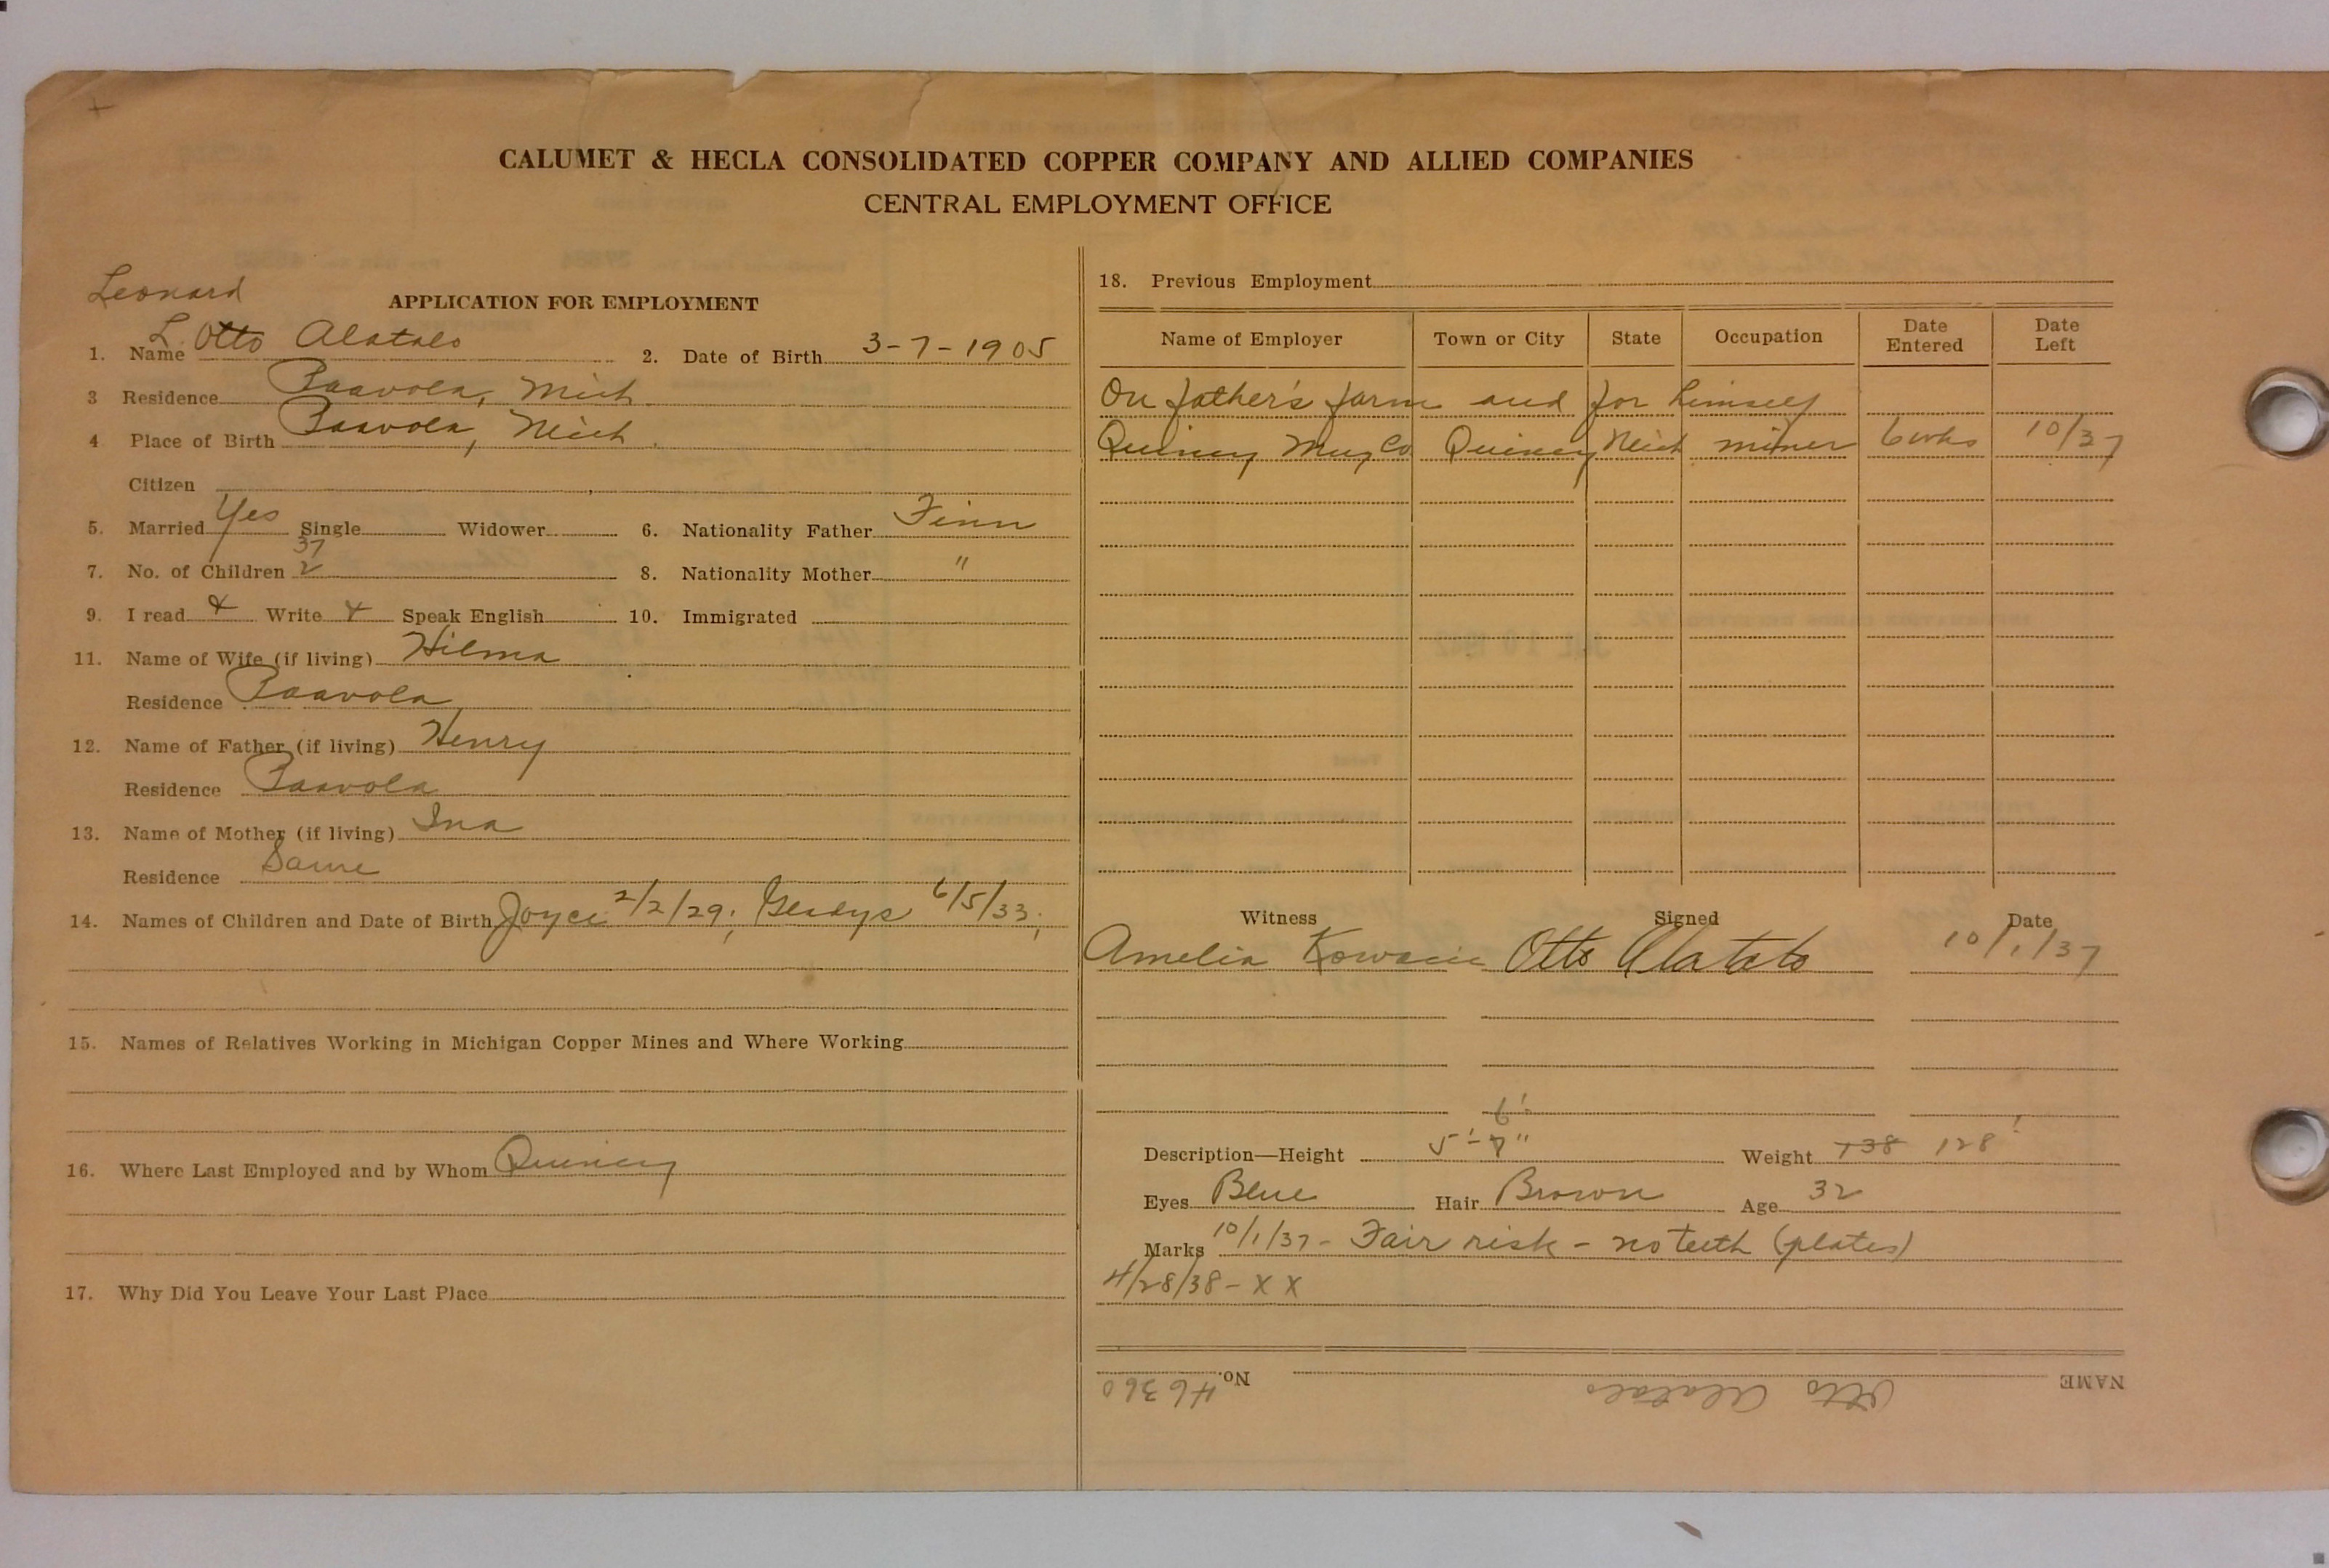 CALUMET & HECLA CONSOLIDATED COPPER COMPANY AND ALLIED COMPANIES
CENTRAL EMPLOYMENT OFFICE
Leonard
APPLICATION FOR EMPLOYMENT
1. Name L. Otto Alatalo 2. Date of Birth 3-7-1905
3 Residence Paavola, Mich.
4 Place of Birth Paavola, Mich.
Citizen
5. Married Yes Single Widower 6. Nationality Father Finn
37
7. No. of Children 2 8. Nationality Mother "
9. I read Write Speak English 10. Immigrated
11. Name of Wife (if living) Hilma
Residence Paavola
12. Name of Father (if living) Henry
Residence Paavola
13. Name of Mother (if living) Ina
Residence Same
14. Names of Children and Date of Birth Joyce 2/2/29; Gladys 6/5/33;
15. Names of Relatives Working in Michigan Copper Mines and Where Working
16. Where Last Employed and by Whom Quincy
17. Why Did You Leave Your Last Place
18. Previous Employment
Name of Employer Town or City State Occupation Date Entered Date Left
On father's farm and for himself
Quincy Mng Co Quincy Mich miner 6 wks 10/37
Witness Signed Date
Amelia Otto Alatalo 10/1/37
6'
Description—Height 5'-7" Weight 138 128
Eyes Blue Hair Brown Age 32
Marks 10/1/37 - Fair risk - no teeth (plates)
4/28/38 - X X
NAME Otto Alatalo No. 46360